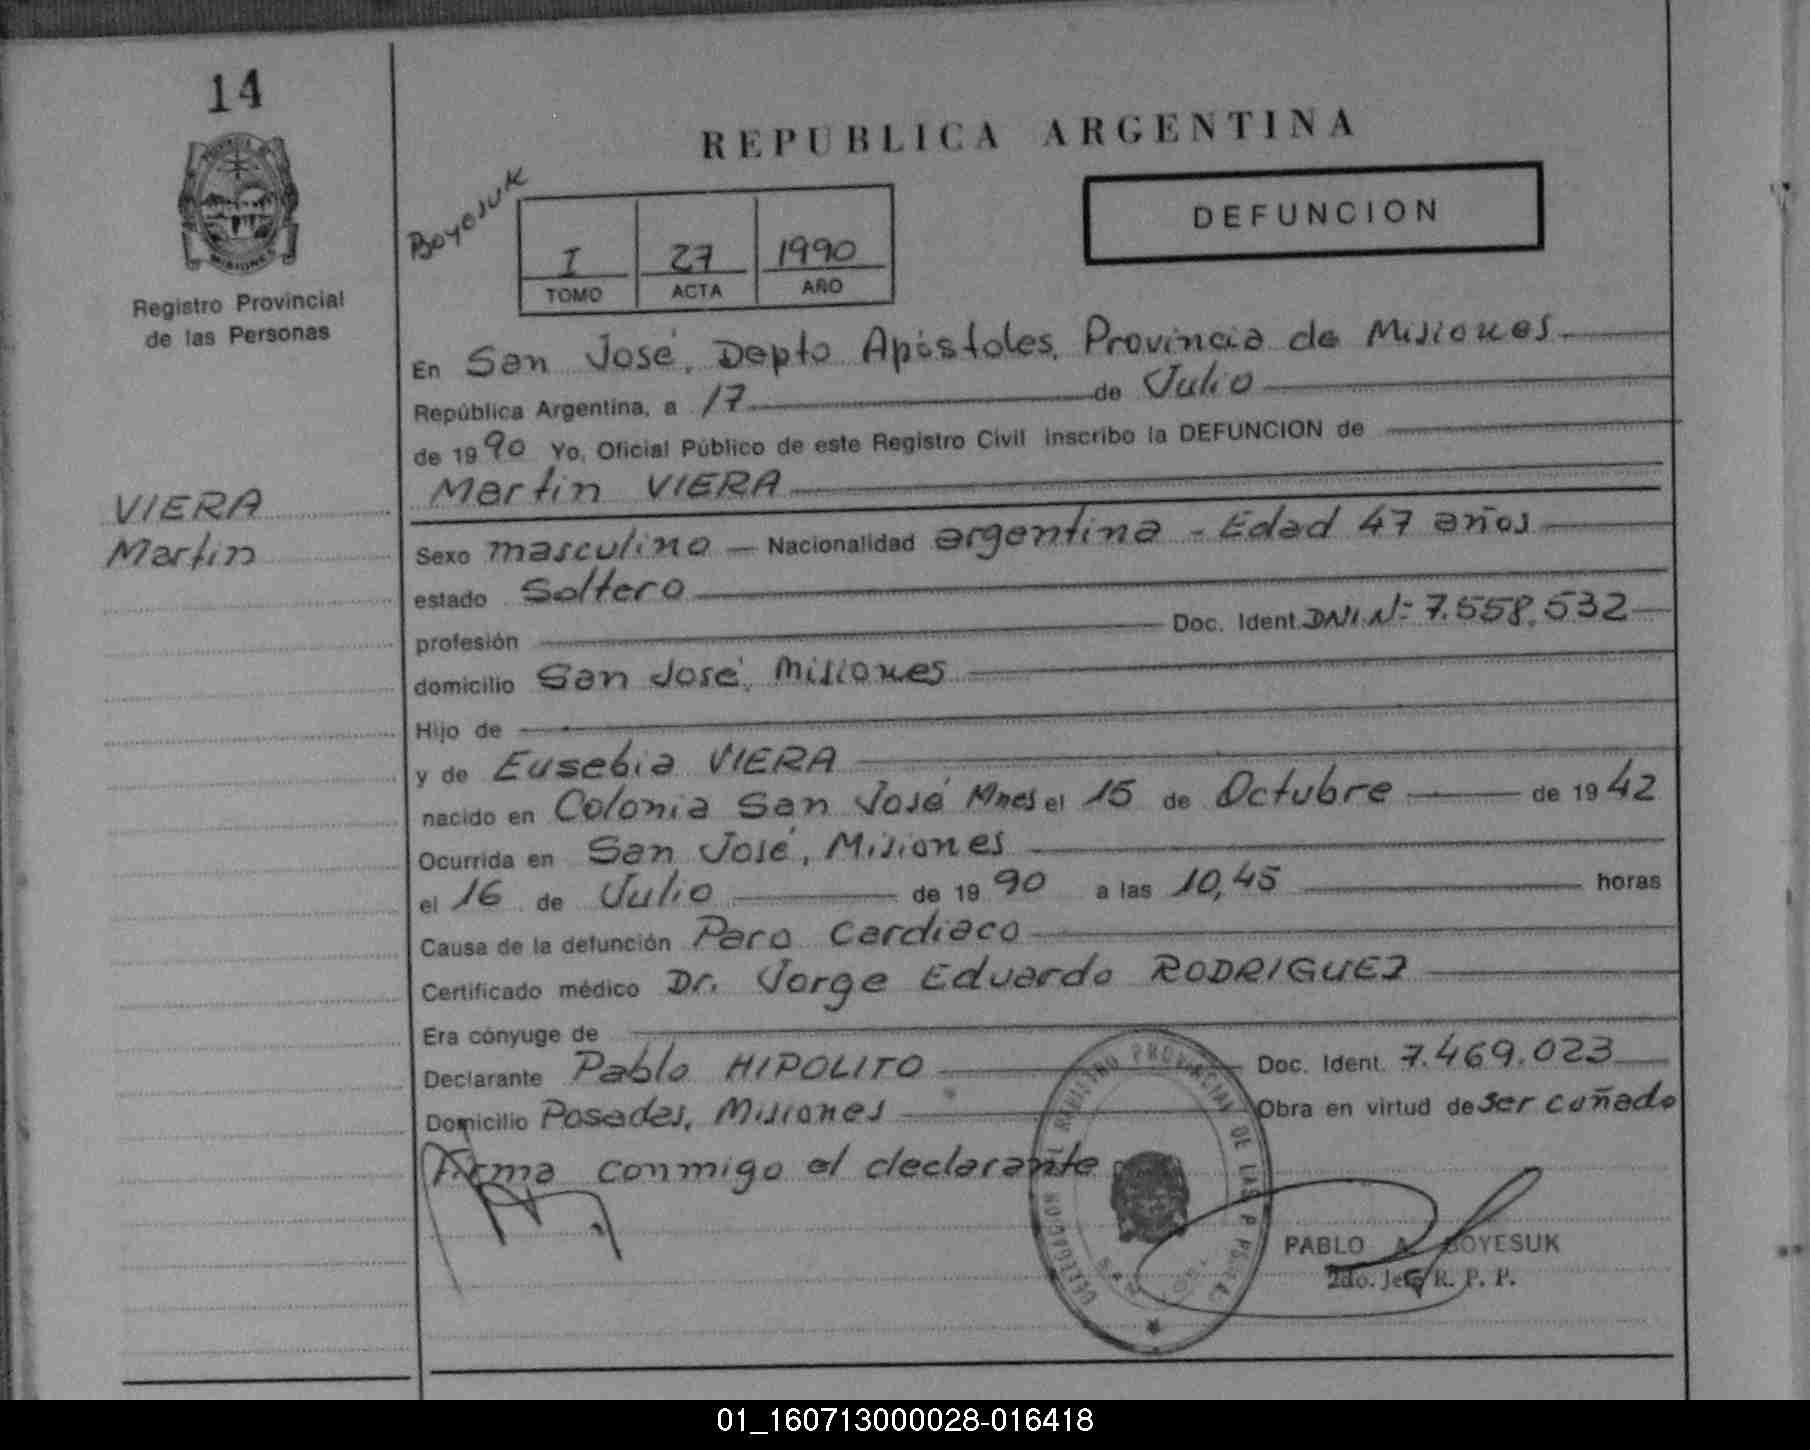 14
MISIONES
Registro Provincial
de las Personas
VIERA
Martin
REPUBLICA ARGENTINA
Boyesuk
I 27 1990
TOMO ACTA AÑO
DEFUNCION
En San José, Depto Apóstoles, Provincia de Misiones
República Argentina, a 17 de Julio
de 1990 Yo, Oficial Público de este Registro Civil inscribo la DEFUNCION de
Martin VIERA
Sexo masculino Nacionalidad argentina - Edad 47 años
estado Soltero
profesión Doc. Ident. DNI.Nº 7.558.532
domicilio San José, Misiones
Hijo de
y de Eusebia VIERA
nacido en Colonia San José Mnes el 15 de Octubre de 1942
Ocurrida en San José, Misiones
el 16 de Julio de 1990 a las 10,45 horas
Causa de la defunción Paro Cardiaco
Certificado médico Dr. Jorge Eduardo RODRIGUEZ
Era cónyuge de
Declarante Pablo HIPOLITO Doc. Ident. 7.469.023
Domicilio Posadas, Misiones Obra en virtud de ser cuñado
Firma conmigo el declarante
PABLO A. BOYESUK
2do. Jefe R. P. P.
01_160713000028-016418